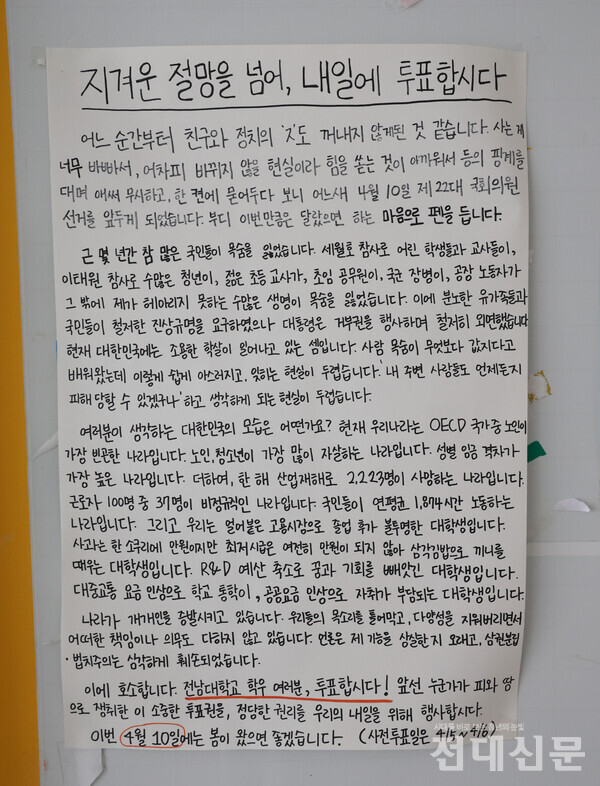 지겨운 절망을 넘어, 내일에 투표합시다
어느 순간부터 친구와 정치의 'ㅈ'도 꺼내지 않게된 것 같습니다. 사는 게
너무 바빠서, 어차피 바뀌지 않을 현실이라 힘을 쏟는 것이 아까워서 등의 핑계를
대며 애써 무시하고, 한 켠에 묻어두다 보니 어느새 4월 10일 제22대 국회의원
선거를 앞두게 되었습니다. 부디 이번만큼은 달랐으면 하는 마음으로 펜을 듭니다.
근 몇 년간 참 많은 국민들이 목숨을 잃었습니다. 세월호 참사로 어린 학생들과 교사들이,
이태원 참사로 수많은 청년이, 젊은 초등 교사가, 초임 공무원이, 국군 장병이, 공장 노동자가
그 밖에 제가 헤아리지 못하는 수많은 생명이 목숨을 잃었습니다. 이에 분노한 유가족들과
국민들이 철저한 진상규명을 요구하였으나 대통령은 거부권을 행사하며 철저히 외면했습니다
현재 대한민국에는 조용한 학살이 일어나고 있는 셈입니다. 사람 목숨이 무엇보다 값지다고
배워왔는데 이렇게 쉽게 아스러지고, 잊히는 현실이 두렵습니다. '내 주변 사람들도 언제든지
피해 당할 수 있겠구나' 하고 생각하게 되는 현실이 두렵습니다.
여러분이 생각하는 대한민국의 모습은 어떤가요? 현재 우리나라는 OECD 국가 중 노인이
가장 빈곤한 나라입니다. 노인, 청소년이 가장 많이 자살하는 나라입니다. 성별 임금 격차가
가장 높은 나라입니다. 더하여, 한 해 산업재해로 2,223명이 사망하는 나라입니다.
근로자 100명 중 37명이 비정규직인 나라입니다. 국민들이 연평균 1,874시간 노동하는
나라입니다. 그리고 우리는 얼어붙은 고용시장으로 졸업 후가 불투명한 대학생입니다.
사과는 한 소쿠리에 만원이지만 최저시급은 여전히 만원이 되지 않아 삼각김밥으로 끼니를
때우는 대학생입니다. R&D 예산 축소로 꿈과 기회를 빼앗긴 대학생입니다.
대중교통 요금 인상으로 학교 통학이, 공공요금 인상으로 자취가 부담되는 대학생입니다.
나라가 개개인을 증발시키고 있습니다. 우리들의 목소리를 틀어막고, 다양성을 지워버리면서
어떠한 책임이나 의무도 다하지 않고 있습니다. 언론은 제 기능을 상실한지 오래고, 삼권분립
·법치주의는 심각하게 훼손되었습니다.
이에 호소합니다. 전남대학교 학우 여러분, 투표합시다! 앞선 누군가가 피와 땀
으로 쟁취한 이 소중한 투표권을, 정당한 권리를 우리의 내일을 위해 행사합시다.
이번 4월 10일에는 봄이 왔으면 좋겠습니다. (사전투표일은 4/5~4/6)
전대신문